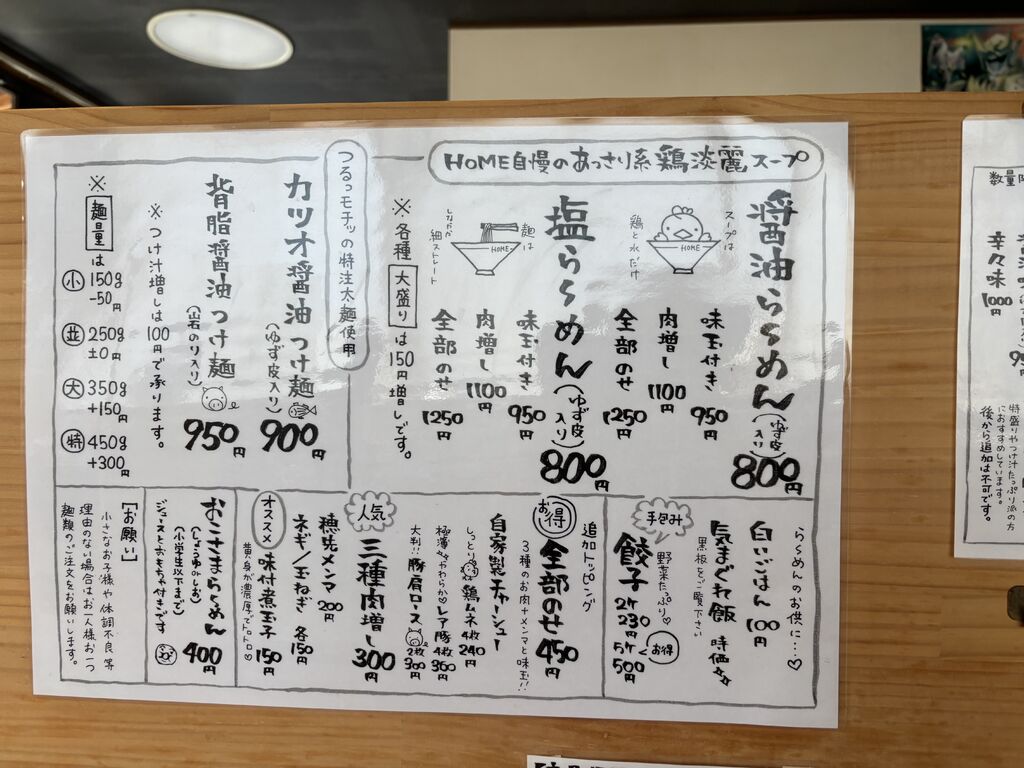 HOME自慢のあっさり系鶏淡麗スープ
醤油らぁめん(ゆず皮入り)
800円
スープは
鶏と水だけ
HOME
味玉付き
950円
肉増し
1100円
全部のせ
1250円
塩らぁめん(ゆず皮入り)
800円
麺は
しなやか細ストレート
HOME
味玉付き
950円
肉増し
1100円
全部のせ
1250円
※各種大盛りは150円増しです。
つるっモチッの特注太麺使用
カツオ醤油つけ麺
(ゆず皮入り)
900円
背脂醤油つけ麺
(岩のり入り)
950円
※つけ汁増しは100円で承ります。
※麺量は
小 150g
-50円
並 250g
±0円
大 350g
+150円
特 450g
+300円
らぁめんのお供に…♡
白いごはん 100円
気まぐれ飯 時価
黒板をご覧下さい
手包み
餃子
野菜たっぷり♡
2ケ 230円
5ケ 500円
お得
追加トッピング
お得
全部のせ 450円
3種のお肉+メンマと味玉!!
自家製チャーシュー
しっとり 鶏ムネ 4枚 240円
極薄やわらか♡レア豚 4枚 360円
大判!!豚肩ロース 2枚 300円
人気
三種肉増し 300円
穂先メンマ 200円
ネギ/玉ねぎ 各150円
オススメ
味付煮玉子 150円
黄身が濃厚でトロトロ♡
おこさまらぁめん 400円
(しょうゆorしお)
(小学生以下まで)
ジュースとおもちゃ付きです
【お願い】
小さなお子様や体調不良等
理由のない場合はお一人様お一つ
麺類のご注文をお願いします。
数量限
辛々味
1000円
特盛りやつけ汁たっぷり派の方
におすすめしています。
後から追加は不可です。